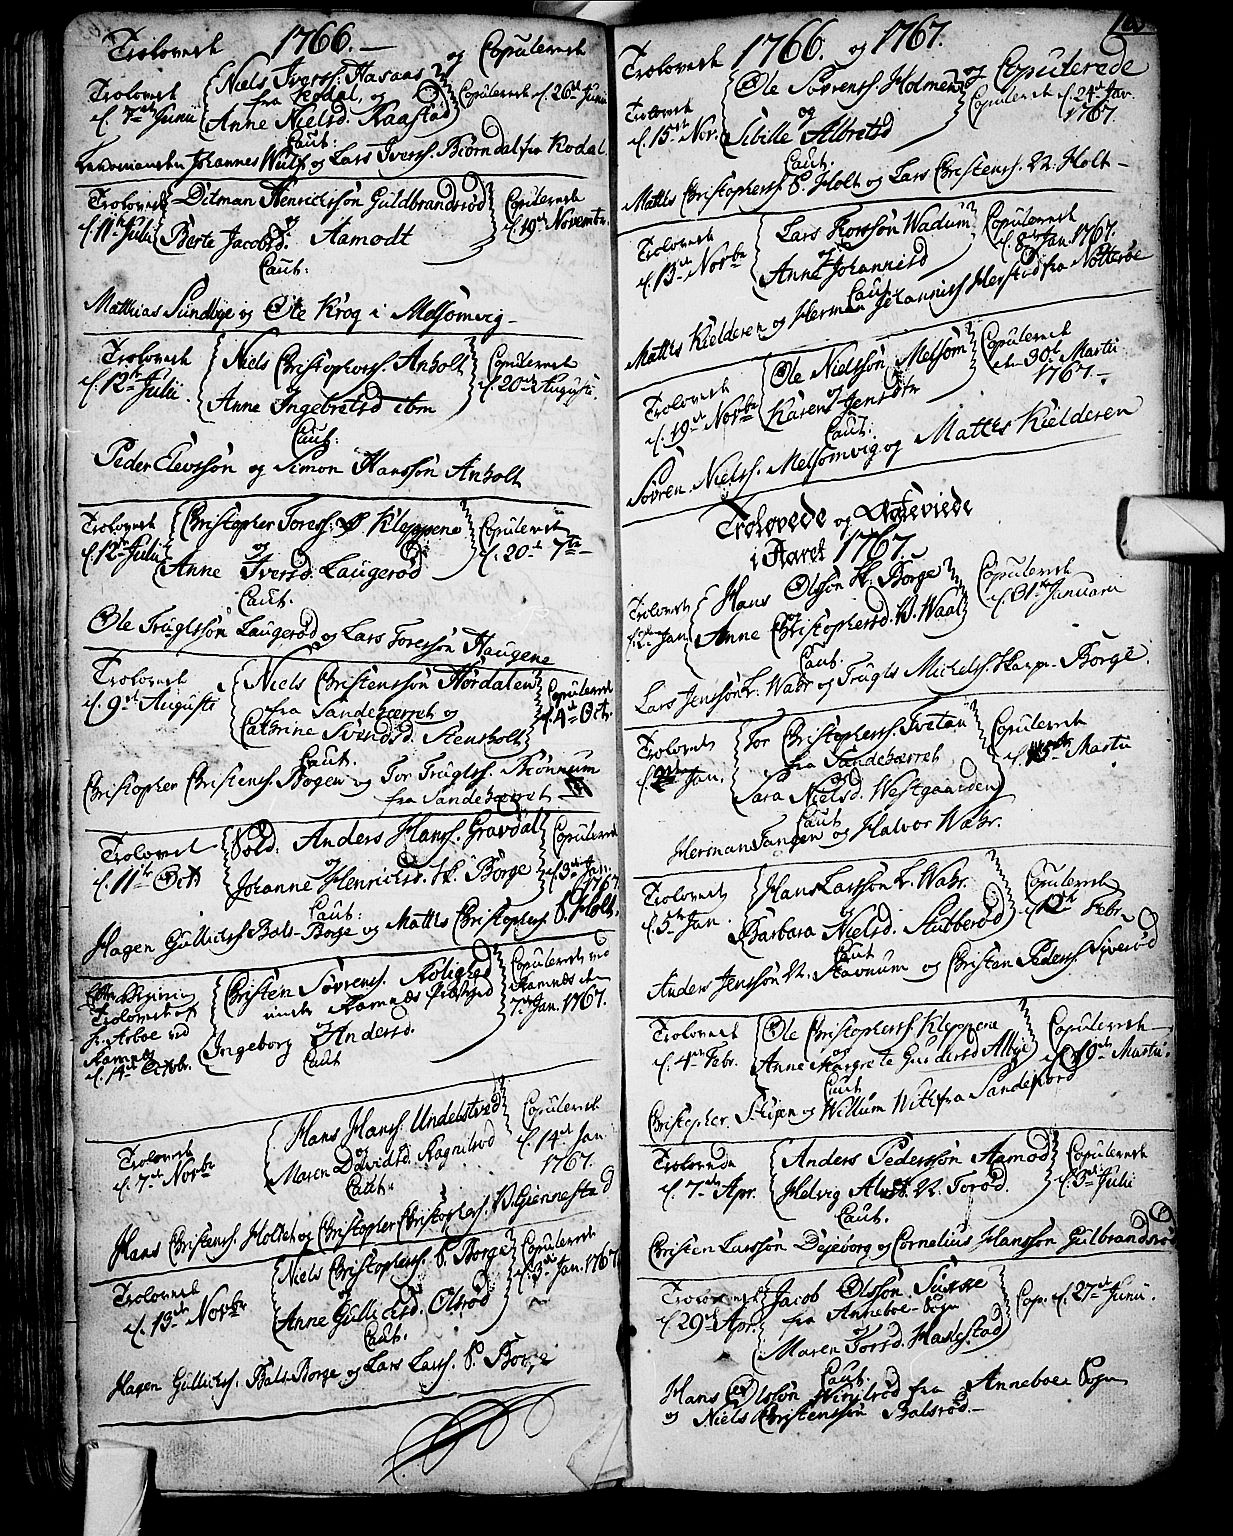 Trolovede 1766. og Copulerede
Trolovede d. 7de Junii
Niels Iverss: Hasaas
fra Kodal, og
Anne Nielsd. Kaastad
Copulerede d. 26de Junii
Caut:
Johannes Wulf og Lars Iverss. Biörndal fra Kodal
Trolovede d. 11te Julii
Ditman Henrichssön Guldbrandsröd
og
Berte Jacobsd. Aamodt
Copulerede d. 19de Novembr.
Caut:
Matthias Sundbye og Ole Krog i Melsomvig
Trolovede d. 12te Julii
Niels Christopherss. Anholt
og
Anne Ingebretsd ibm
Copulerede d. 20de Augusti.
Caut:
Peder Elevssön og Simon Hanssön Anholt
Trolovede d. 12te Julii
Christopher Toress: Kleppene
og
Anne Iversd. Laugeröd
Copulerede d. 20de 7br
Caut.
Ole Trulssön Laugeröd og Lars Toressön Haugene
Trolovede d. 9de Augusti
Niels Christenssön Hördalen
fra Sandeherret og
Cathrine Svendsd. Stensholt
Copulerede d. 4de Octr.
Caut.
Christopher Christenss. Bogen og Tor Truglss. Biönnum
fra Sandeherret
Trolovede d. 11te Octr
Sold. Anders Hanss. Gravdal
og
Johanne Henrichsd. Borge
Copulerede d. 3de Jan. 1767.
Caut:
Hagen Gullichss Bals-Borge og Mattis Christopherss S. Holt.
Trolovede af
Hr. Arboe ved
Ramnes
d. 14de Octobr.
Christen Sörenss. Rolighed
under Ramnes Præstegd
og
Ingeborg Andersd.
Copulerede ved
Ramnes den
7de Jan. 1767.
Caut
Trolovede d. 7de Novbr
Hans Hanss. Undelstved
og
Maren Davidsd. Ragnilröd
Copulerede d. 14de Jan. 1767.
Caut:
Hans Christenss. Holtet og Christopher Christopherss. N. Giennestad
Trolovede d. 13de Novbr
Niels Christopherss. S. Borge
og
Anne Gullichsd. Olsröd
Copulerede d. 3de Jan. 1767
Caut.
Hagen Gullichss. Bals-Borge og Lars Larss. S. Borge
Trolovede 1766. og 1767. og Copulerede
Trolovede d. 15de Nov.
Ole Sörenss. Holmen
og
Sibille Albretsd
Copulerede d. 24de Jan. 1767.
Caut.
Mattis Christopherss S. Holt og Lars Christenss. N. Holt
Trolovede d. 13de Novbr
Lars Korssön Wadum
og
Anne Johannisd
Copulerede d. 8de Jan. 1767.
Caut.
Mattis Kielderen og Herman Johanniss Herstad fra Nötteröe
Trolovede d. 19de Novbr
Ole Nielssön Melsom
og
Karen Jensdtr
Copulerede den 30te Martii 1767.
Caut:
Sören Nielss. Melsomvig og Mattis Kielderen
Trolovede og Ægteviede
i Aaret 1767.
Trolovede Jan.
Hans Olssön Borge
og
Anne Christophersd. N. Waal
Copulerede d. 31te Januarii
Caut.
Lars Jenssön L. Wabr og Trugls Michelss. Borge.
Trolovede Jan.
Tor Christopherss. Tvetan
fra Sandeherret
Sara Nielsd. Westgaarden
Copulerede d. Martii
Caut
Herman Tangen og Halvor Wabr.
Trolovede d. 5te Jan.
Hans Larssön L. Wabr.
og
Barbara Nielsd. Stubberöd
Copulerede d. 12te Febr.
Caut
Anders Jenssön N. Stavnum og Christen Pederss. Syveröd
Trolovede d. 4de Febr.
Ole Christopherss. Kleppene
og
Anne Margrete Gundersd Albye
Copulerede d. 19de Martii.
Caut
Christopher Stupen og Willum Witt fra Sandefiord
Trolovede d. 7de Apr.
Anders Pederssön Aamod
Helvig N. Toröd.
Copulerede d. 3de Julii
Caut.
Christen Larssön Dejeborg og Cornelius Hanssön Gulbrandsröd
Trolovede d. 29de Apr.
Jacob Olssön
fra Anneboe-Sogn
og
Maren Torsd. Hankestad
Cop. d. 27de Junii.
Caut.
Hans Olssön fra Anneboe Sogn
og Niels Christenssön Balsröd